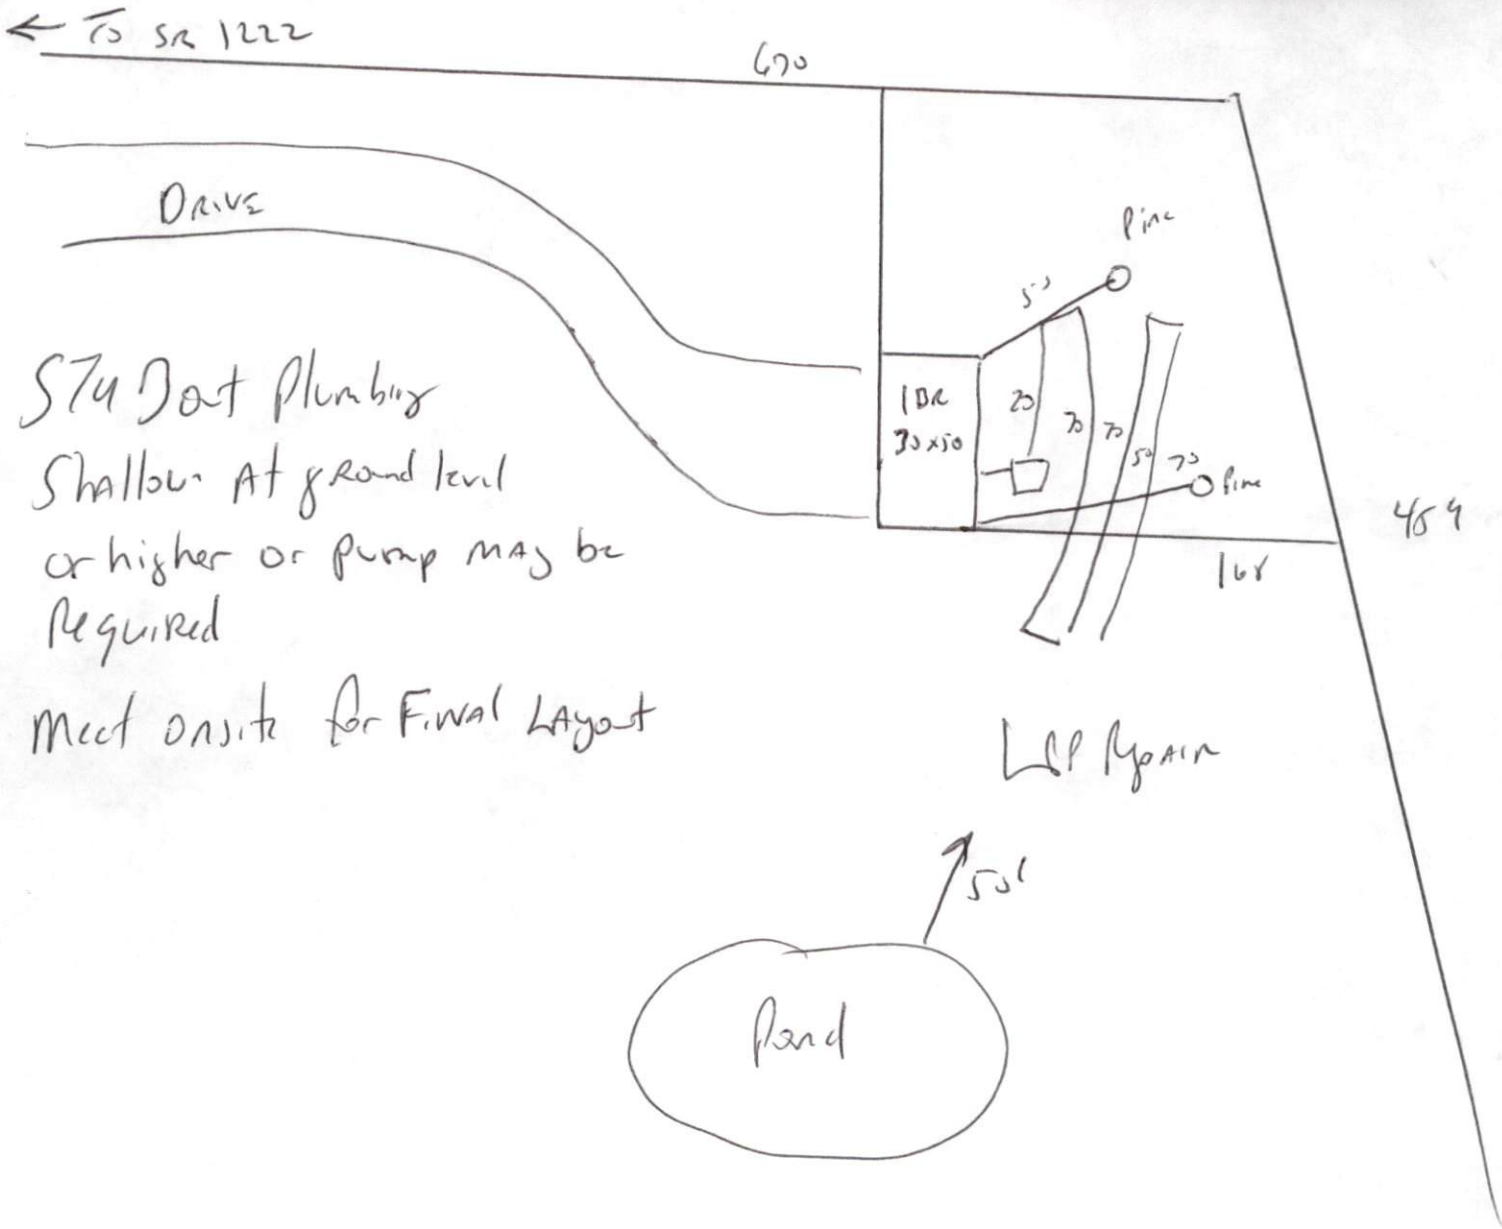 ← To SR 1222
670
DRIVE
Pine
50
1BR
30x50
20
70
70
50
70
Pine
STU Dout Plumbing
Shallow At ground level
or higher or pump may be
Required
168
Meet onsite for Final Layout
LPP Repair
50'
Pond